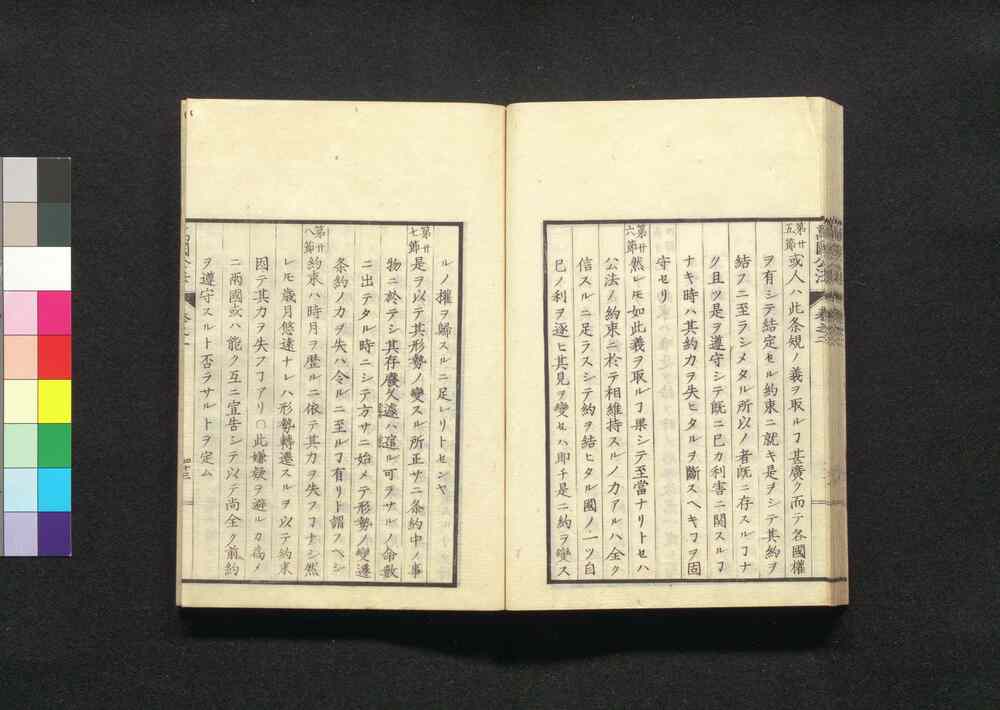 萬國公法 巻之二
第廿五節 或人ハ此条規ノ義ヲ取ルヿ甚廣ク而テ各國權
ヲ有シテ結定セル約束ニ就キ是ヲシテ其約ヲ
結フニ至ラシメタル所以ノ者既ニ存スルヿナ
ク且ツ是ヲ遵守シテ既ニ已カ利害ニ関スルヿ
ナキ時ハ其約力ヲ失ヒタルヲ斷スヘキヿヲ固
守セリ
第廿六節 然レモ如此義ヲ取ルヿ果シテ至當ナリトセハ
公法ノ約束ニ於テ相維持スルノ力アルハ全ク
信スルニ足ラスシテ約ヲ結ヒタル國ノ一ツ自
已ノ利ヲ逐ヒ其見ヲ變セハ即チ是ニ約ヲ變ス
ルノ權ヲ歸スルニ足レリトセンヤ
第廿七節 是ヲ以テ其形勢ノ變スル所正サニ条約中ノ事
物ニ於テシ其存廢久遠ハ逭ル可ヲサルノ命数
ニ出テタル時ニシテ方サニ始メテ形勢ノ變遷
条約ノ力ヲ失ハ令ルニ至ルヿ有リト謂フヘシ
第廿八節 約束ハ時月ヲ歴ルニ依テ其力ヲ失フヿナシ然
レモ歳月悠遠ナレハ形勢轉遷スルヲ以テ約束
因テ其力ヲ失フヿアリ○此嫌疑ヲ避ルカ為メ
ニ兩國或ハ能ク互ニ宣告シテ以テ尚全ク前約
ヲ遵守スルト否ラサルトヲ定ム
四十三